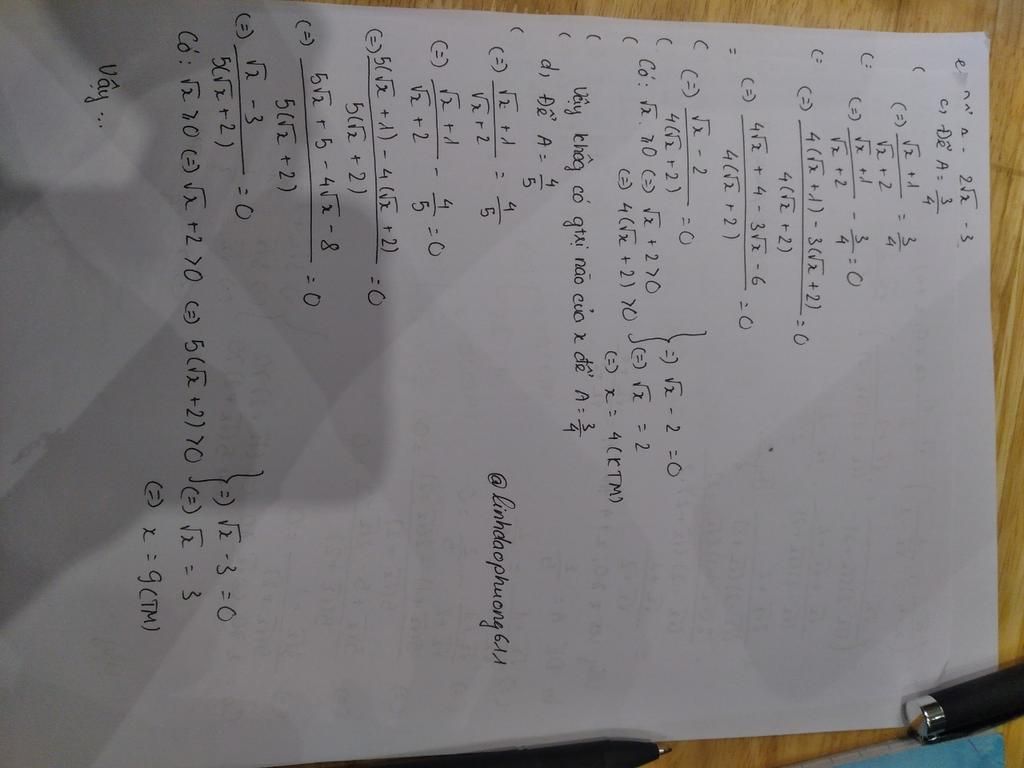 2√x - 3
c, Để A = 3/4
(=) (√x + 1)/(√x + 2) = 3/4
(=) (√x + 1)/(√x + 2) - 3/4 = 0
(=) (4(√x + 1) - 3(√x + 2))/(4(√x + 2)) = 0
(=) (4√x + 4 - 3√x - 6)/(4(√x + 2)) = 0
(=) (√x - 2)/(4(√x + 2)) = 0
Có: √x ≥ 0 (=) √x + 2 > 0 } (=) √x - 2 = 0
(=) 4(√x + 2) > 0 (=) √x = 2
(=) x = 4 (KTM)
Vậy không có gtrị nào của x để A = 3/4
d, Để A = 4/5
(=) (√x + 1)/(√x + 2) = 4/5
(=) (√x + 1)/(√x + 2) - 4/5 = 0
(=) (5(√x + 1) - 4(√x + 2))/(5(√x + 2)) = 0
(=) (5√x + 5 - 4√x - 8)/(5(√x + 2)) = 0
(=) (√x - 3)/(5(√x + 2)) = 0
Có: √x ≥ 0 (=) √x + 2 > 0 (=) 5(√x + 2) > 0 } (=) √x - 3 = 0
(=) √x = 3
(=) x = 9 (TM)
Vậy ...
@linhdaophuong6.11